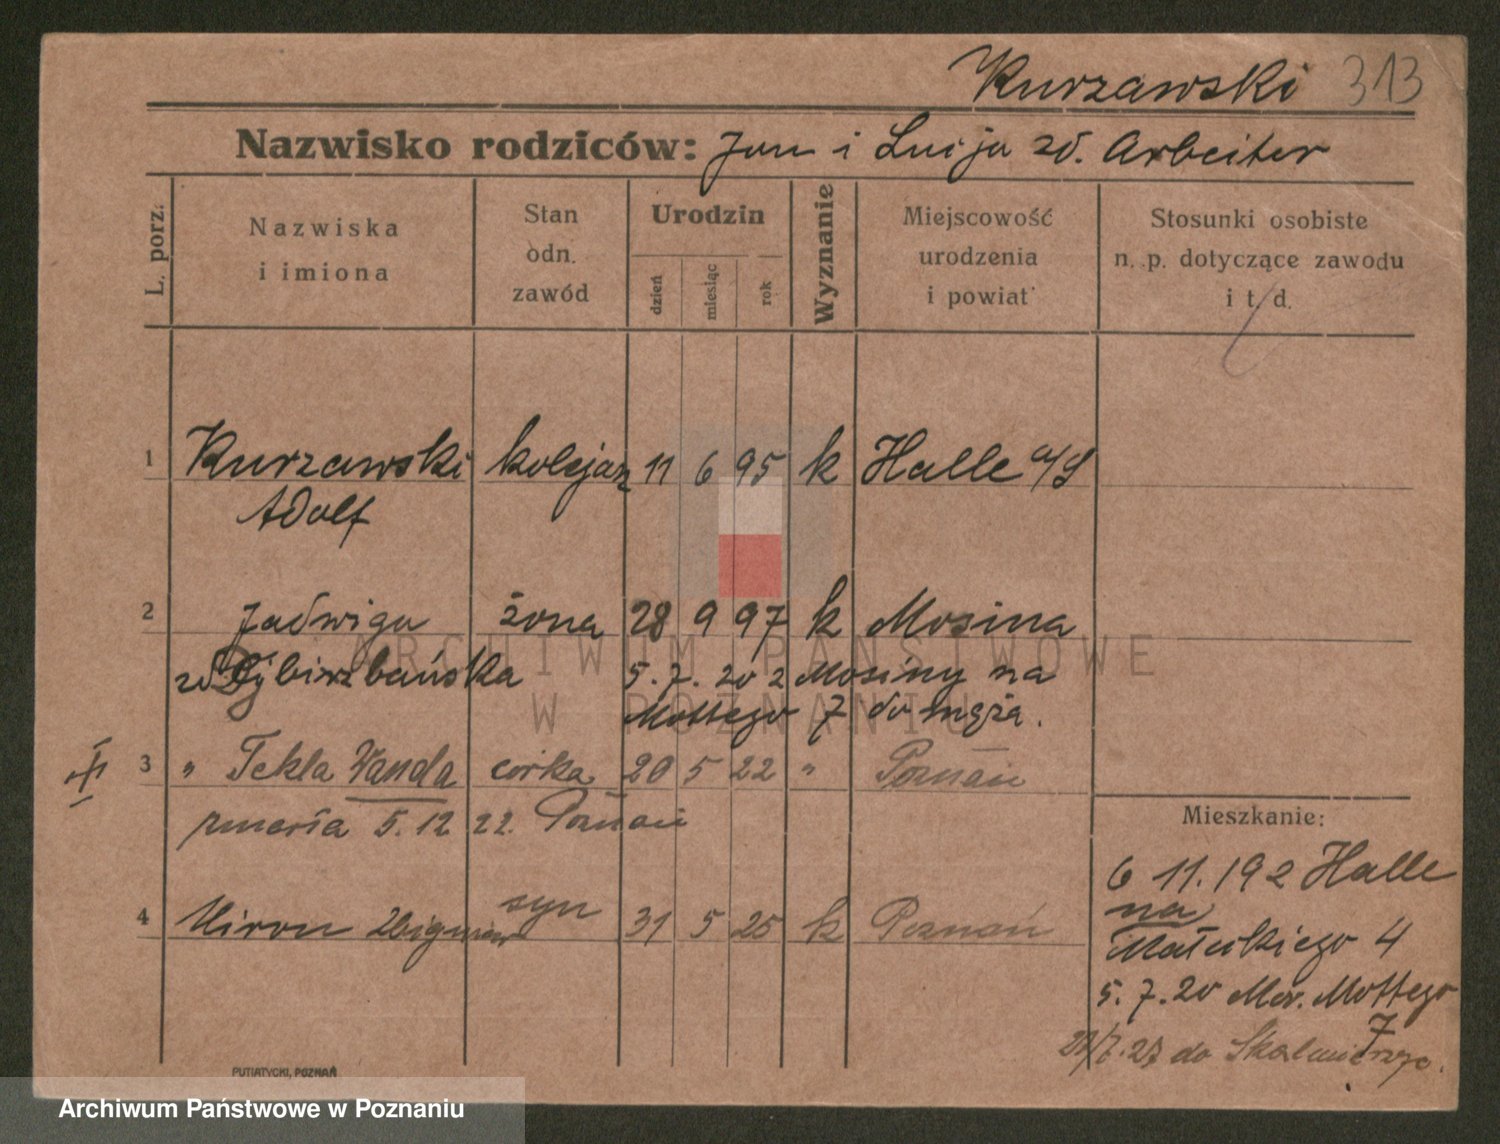 Kurzawski 313
Nazwisko rodziców: Jan i Lucija zd. Arbeiter
L. porz.
Nazwiska
i imiona
Stan
odn.
zawód
Urodzin
dzień
miesiąc
rok
Wyznanie
Miejscowość
urodzenia
i powiat
Stosunki osobiste
n. p. dotyczące zawodu
i t. d.
1 Kurzawski kolejarz 11 6 95 k Halle a/S
Adolf
2 Jadwiga żona 28 9 97 k Mosina
5. 7. 20 z Mosiny na
Mottego 7 do męża.
3 " Tekla Wanda córka 20 5 22 " Poznań
zmarła 5. 12 22. Poznań
4 Miron Zbigniew syn 31 5 25 k Poznań
Mieszkanie:
6 11. 19 z Halle
na
Małeckiego 4
5. 7. 20 Mottego
7
do Skalmierzyc.
PUTIATYCKI, POZNAŃ
ARCHIWUM PAŃSTWOWE
W POZNANIU
Archiwum Państwowe w Poznaniu